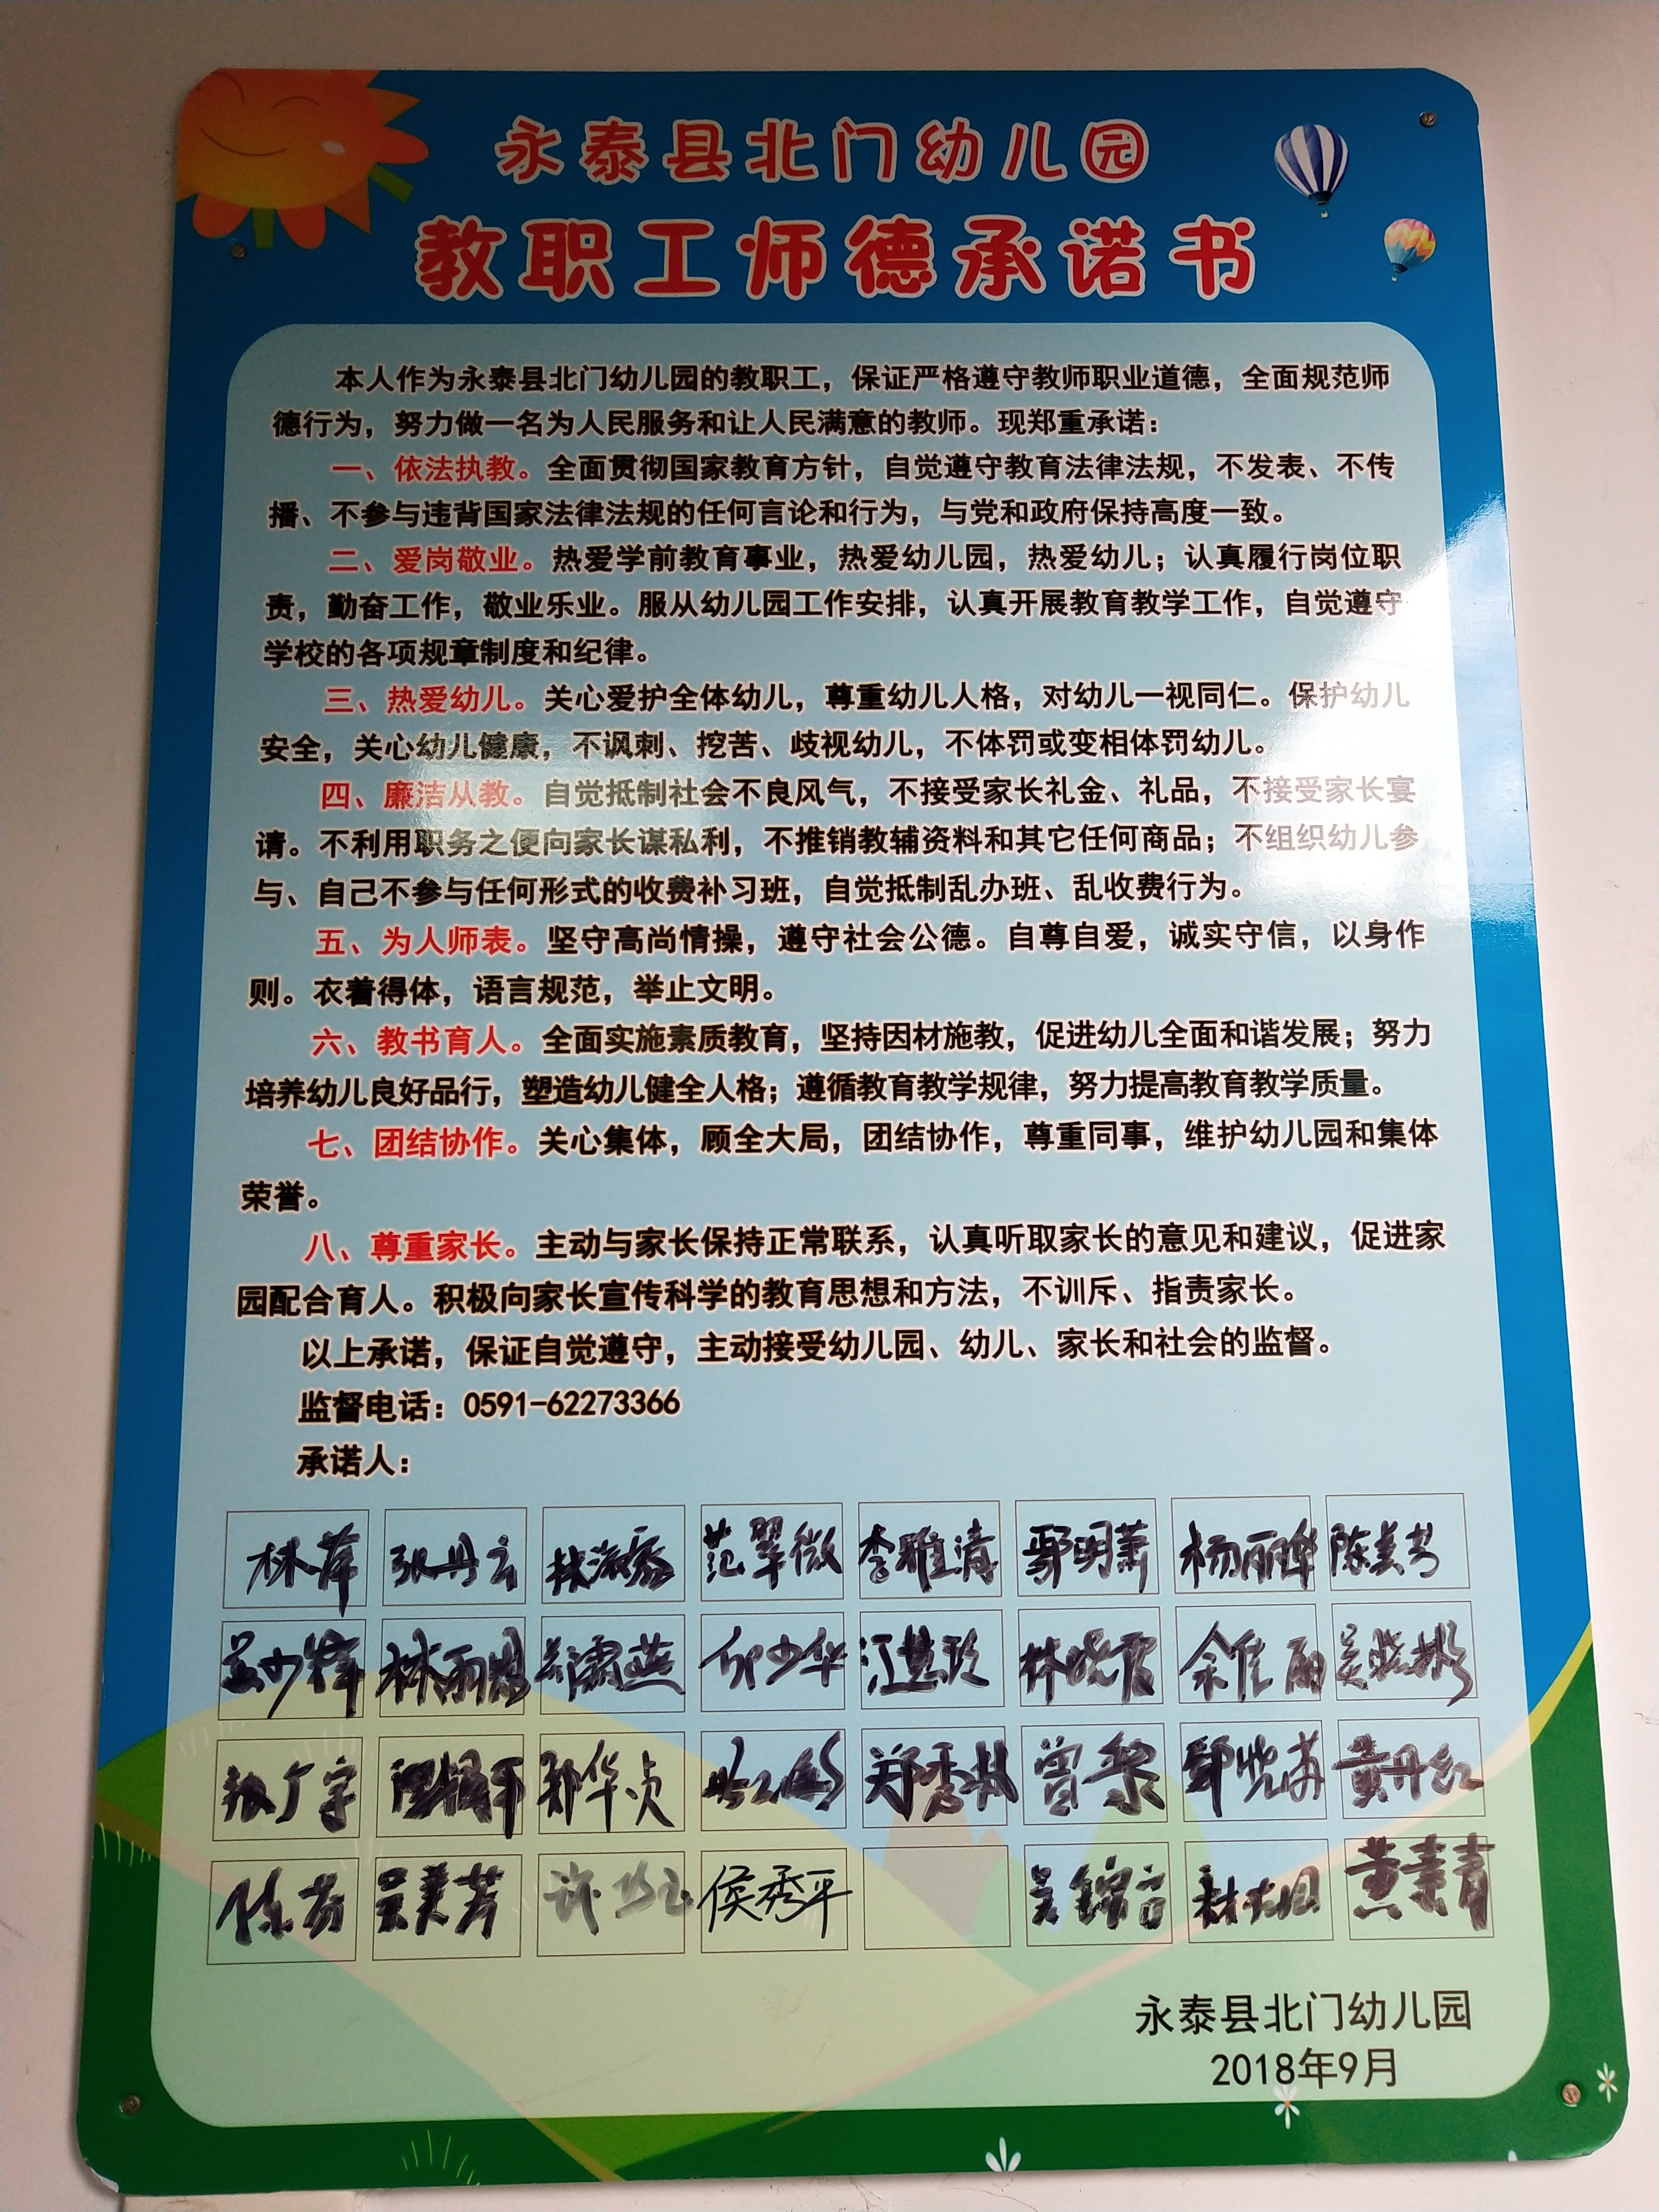 永泰县北门幼儿园
教职工师德承诺书
本人作为永泰县北门幼儿园的教职工，保证严格遵守教师职业道德，全面规范师
德行为，努力做一名为人民服务和让人民满意的教师。现郑重承诺：
一、依法执教。全面贯彻国家教育方针，自觉遵守教育法律法规，不发表、不传
播、不参与违背国家法律法规的任何言论和行为，与党和政府保持高度一致。
二、爱岗敬业。热爱学前教育事业，热爱幼儿园，热爱幼儿；认真履行岗位职
责，勤奋工作，敬业乐业。服从幼儿园工作安排，认真开展教育教学工作，自觉遵守
学校的各项规章制度和纪律。
三、热爱幼儿。关心爱护全体幼儿，尊重幼儿人格，对幼儿一视同仁。保护幼儿
安全，关心幼儿健康，不讽刺、挖苦、歧视幼儿，不体罚或变相体罚幼儿。
四、廉洁从教。自觉抵制社会不良风气，不接受家长礼金、礼品，不接受家长宴
请。不利用职务之便向家长谋私利，不推销教辅资料和其它任何商品；不组织幼儿参
与、自己不参与任何形式的收费补习班，自觉抵制乱办班、乱收费行为。
五、为人师表。坚守高尚情操，遵守社会公德。自尊自爱，诚实守信，以身作
则。衣着得体，语言规范，举止文明。
六、教书育人。全面实施素质教育，坚持因材施教，促进幼儿全面和谐发展；努力
培养幼儿良好品行，塑造幼儿健全人格；遵循教育教学规律，努力提高教育教学质量。
七、团结协作。关心集体，顾全大局，团结协作，尊重同事，维护幼儿园和集体
荣誉。
八、尊重家长。主动与家长保持正常联系，认真听取家长的意见和建议，促进家
园配合育人。积极向家长宣传科学的教育思想和方法，不训斥、指责家长。
以上承诺，保证自觉遵守，主动接受幼儿园、幼儿、家长和社会的监督。
监督电话：0591-62273366
承诺人：
林萍 张丹云 范翠微 李雅清 鄢明萧 杨丽华 陈美芳
江慧玲 林晓霞 余佳丽
张广宇 郑华贞 郑秀林 曾黎 黄丹红
陈芳 吴美芳 侯秀平 黄素青
永泰县北门幼儿园
2018年9月